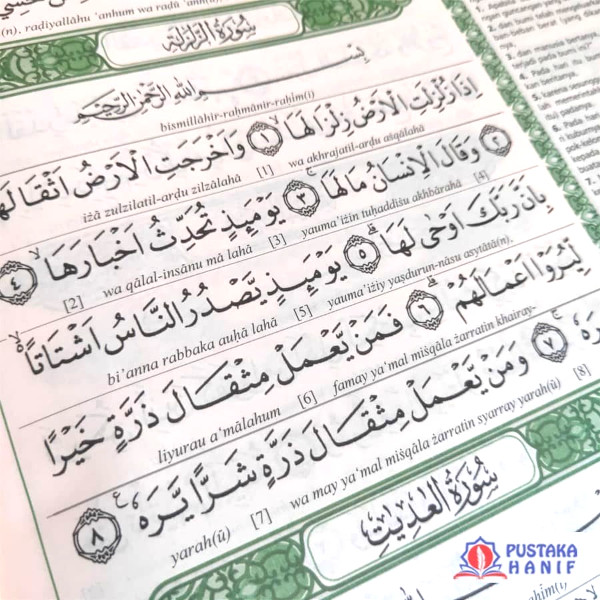 (n), raḍiyallāhu ‘anhum wa raḍū ‘anh(u),
سُوْرَةُ الزَّلْزَلَةِ
بِسْمِ اللّٰهِ الرَّحْمٰنِ الرَّحِيْمِ
bismillāhir-raḥmānir-raḥīm(i)
اِذَا زُلْزِلَتِ الْاَرْضُ زِلْزَالَهَا ۙ ١ وَاَخْرَجَتِ الْاَرْضُ اَثْقَالَهَا
iżā zulzilatil-arḍu zilzālahā [1] wa akhrajatil-arḍu aṡqālahā
٢ وَقَالَ الْاِنْسَانُ مَا لَهَا ۚ ٣ يَوْمَىِٕذٍ تُحَدِّثُ اَخْبَارَهَا ۙ ٤
[2] wa qālal-insānu mā lahā [3] yauma’iżin tuḥaddiṡu akhbārahā [4]
بِاَنَّ رَبَّكَ اَوْحٰى لَهَا ۗ ٥ يَوْمَىِٕذٍ يَّصْدُرُ النَّاسُ اَشْتَاتًا ۙ
bi’anna rabbaka auḥā lahā [5] yauma’iżiy yaṣdurun-nāsu asytātā(n),
لِّيُرَوْا اَعْمَالَهُمْ ۗ ٦ فَمَنْ يَّعْمَلْ مِثْقَالَ ذَرَّةٍ خَيْرًا
liyurau a‘mālahum [6] famay ya‘mal miṡqāla żarratin khairay-
يَّرَهٗ ۚ ٧ وَمَنْ يَّعْمَلْ مِثْقَالَ ذَرَّةٍ شَرًّا يَّرَهٗ ࣖ ٨
yarah(ū) [7] wa may ya‘mal miṡqāla żarratin syarray yarah(ū) [8]
سُوْرَةُ الْعٰدِيٰتِ
PUSTAKA
HANIF